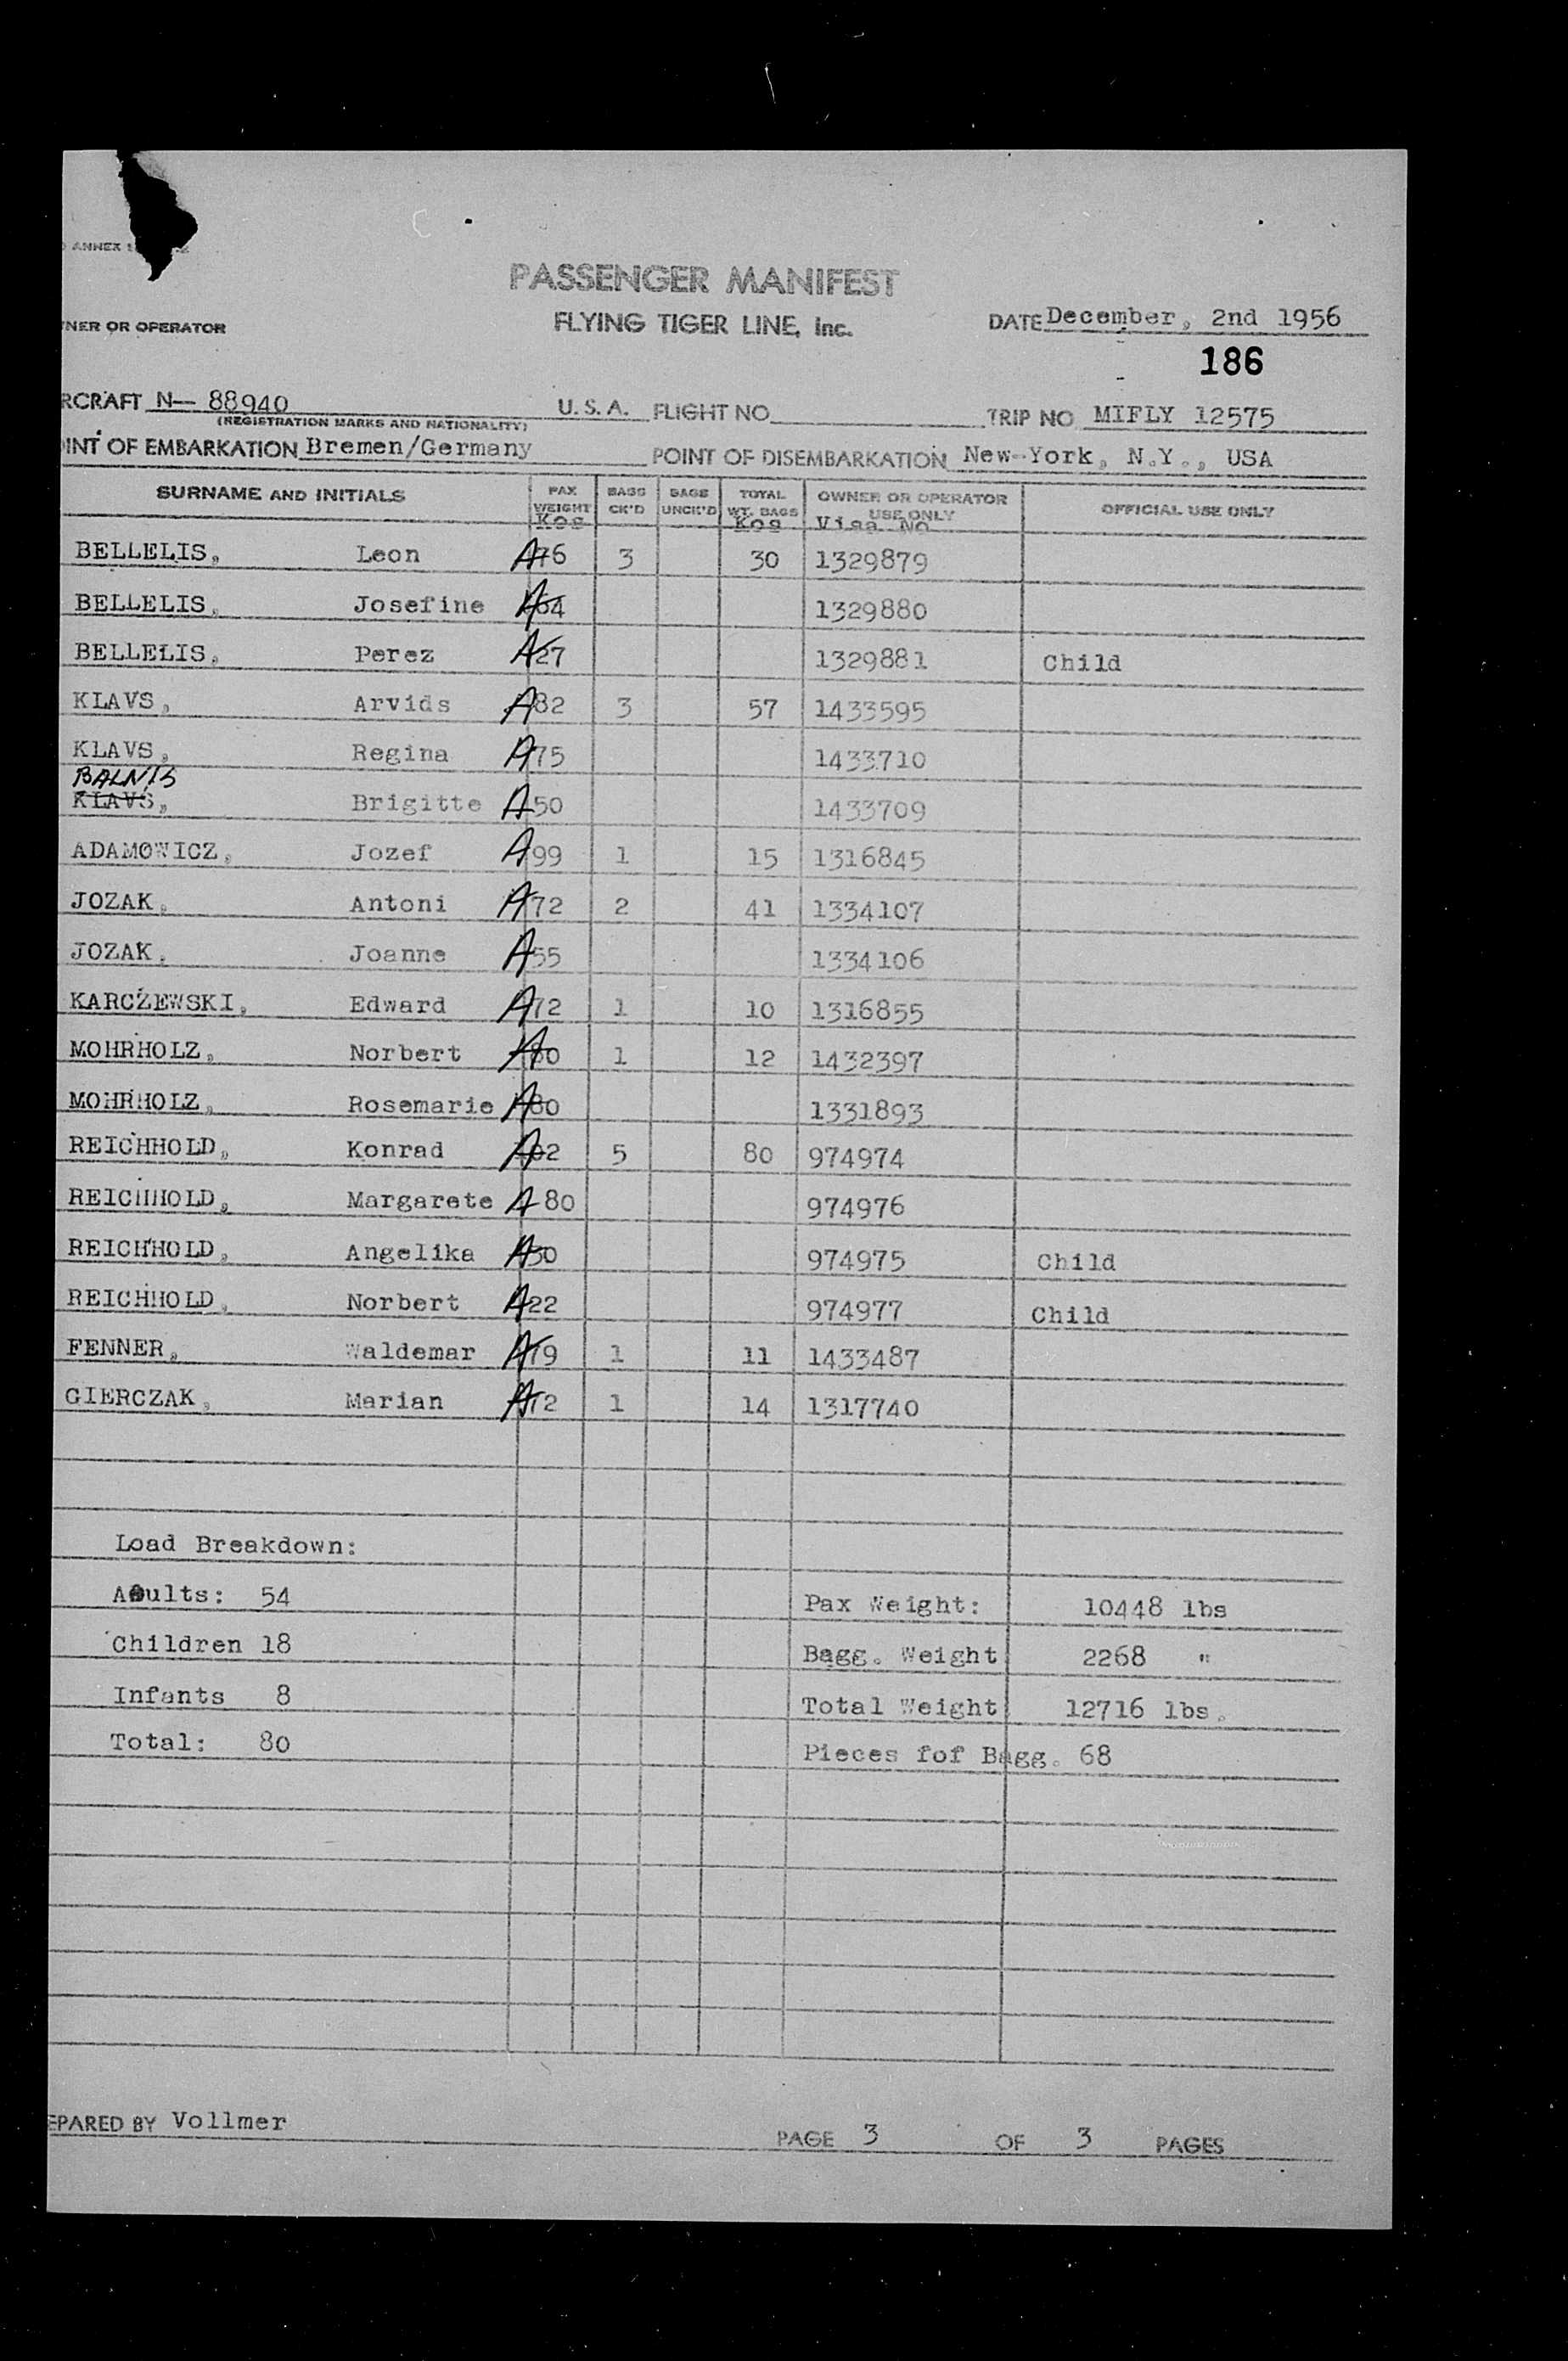 ANNEX
PASSENGER MANIFEST
NER OR OPERATOR FLYING TIGER LINE, Inc. DATE December, 2nd 1956
186
RCRAFT N- 88940 U.S.A. FLIGHT NO TRIP NO MIFLY 12575
(REGISTRATION MARKS AND NATIONALITY)
INT OF EMBARKATION Bremen/Germany POINT OF DISEMBARKATION New-York, N.Y., USA
SURNAME AND INITIALS PAX WEIGHT Kos BAGS CK'D BAGS UNCK'D TOTAL WT. BAGS Kos OWNER OR OPERATOR USE ONLY Visa No OFFICIAL USE ONLY
BELLELIS, Leon A 76 3 30 1329879
BELLELIS, Josefine A 64 1329880
BELLELIS, Perez A 27 1329881 Child
KLAVS, Arvids A 82 3 57 1433595
KLAVS, Regina A 75 1433710
BALNIS
KLAVS, Brigitte A 50 1433709
ADAMOWICZ, Jozef A 99 1 15 1316845
JOZAK, Antoni A 72 2 41 1334107
JOZAK, Joanne A 55 1334106
KARCZEWSKI, Edward A 72 1 10 1316855
MOHRHOLZ, Norbert A 1 12 1432397
MOHRHOLZ, Rosemarie A 1331893
REICHHOLD, Konrad A 5 80 974974
REICHHOLD, Margarete A 80 974976
REICHHOLD, Angelika A 30 974975 Child
REICHHOLD, Norbert A 22 974977 Child
FENNER, Waldemar A 79 1 11 1433487
GIERCZAK, Marian A 72 1 14 1317740
Load Breakdown:
Adults: 54 Pax Weight: 10448 lbs
Children 18 Bagg. Weight 2268 "
Infants 8 Total Weight 12716 lbs.
Total: 80 Pieces fof Bagg. 68
EPARED BY Vollmer PAGE 3 OF 3 PAGES